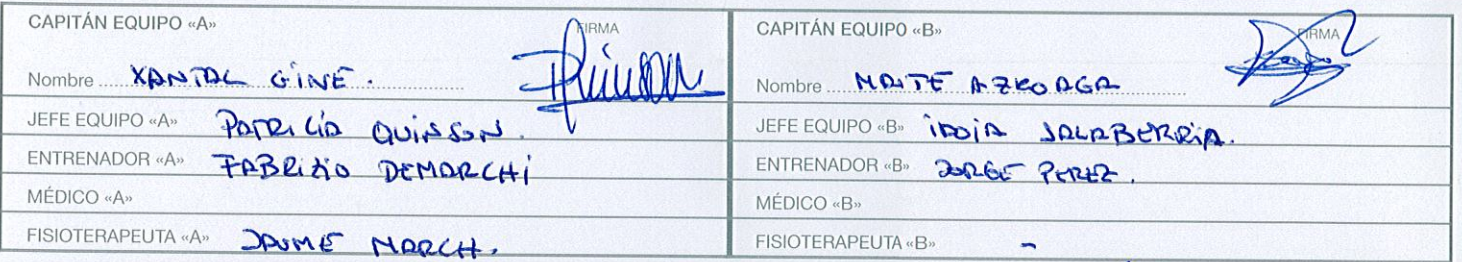 CAPITÁN EQUIPO «A»
FIRMA
Nombre XANTAL GINÉ.
JEFE EQUIPO «A» PATRICIA QUINSON.
ENTRENADOR «A» FABRIZIO DEMARCHI
MÉDICO «A»
FISIOTERAPEUTA «A» JAUME MARCH.
CAPITÁN EQUIPO «B»
FIRMA
Nombre MAITE AZKOAGA
JEFE EQUIPO «B» IDOIA SALABERRIA.
ENTRENADOR «B» JORGE PEREZ.
MÉDICO «B»
FISIOTERAPEUTA «B» -